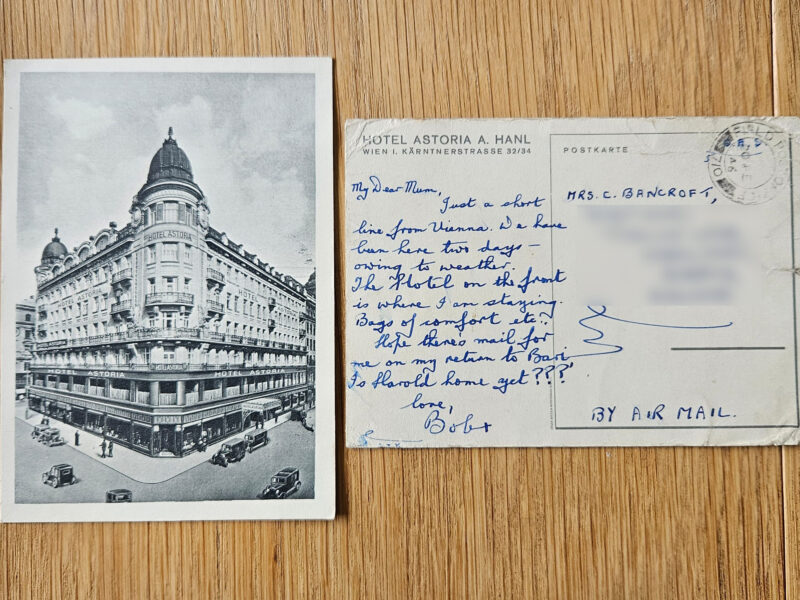 HOTEL ASTORIA
HOTEL ASTORIA
HOTEL ASTORIA
HOTEL ASTORIA A. HANL
WIEN I. KÄRNTNERSTRASSE 32/34
My Dear Mum,
Just a short
line from Vienna. We have
been here two days –
owing to weather.
The Hotel on the front
is where I am staying.
Bags of comfort etc!
Hope theres mail for
me on my return to Bari
Is Harold home yet???
love,
Bob x
POSTKARTE
MRS. C. BANCROFT,
BY AIR MAIL.
FIELD
46